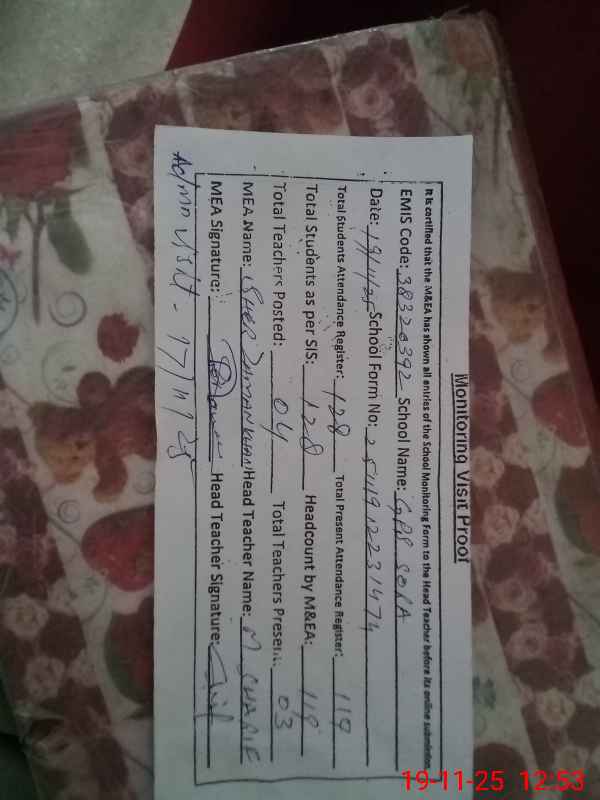 Monitoring Visit Proof
It is certified that the M&EA has shown all entries of the School Monitoring Form to the Head Teacher before its online submission
EMIS Code: 38320392 School Name: GPS SORA
Date: 19/11/25 School Form No: 2511912231474
Total Students Attendance Register: 128 Total Present Attendance Register: 119
Total Students as per SIS: 128 Headcount by M&EA: 119
Total Teachers Posted: 04 Total Teachers Present: 03
MEA Name: SHER ZAMAN KHAN Head Teacher Name: M SHARIF
MEA Signature: Head Teacher Signature:
Ad/mn visit - 17/11/25
19-11-25 12:53